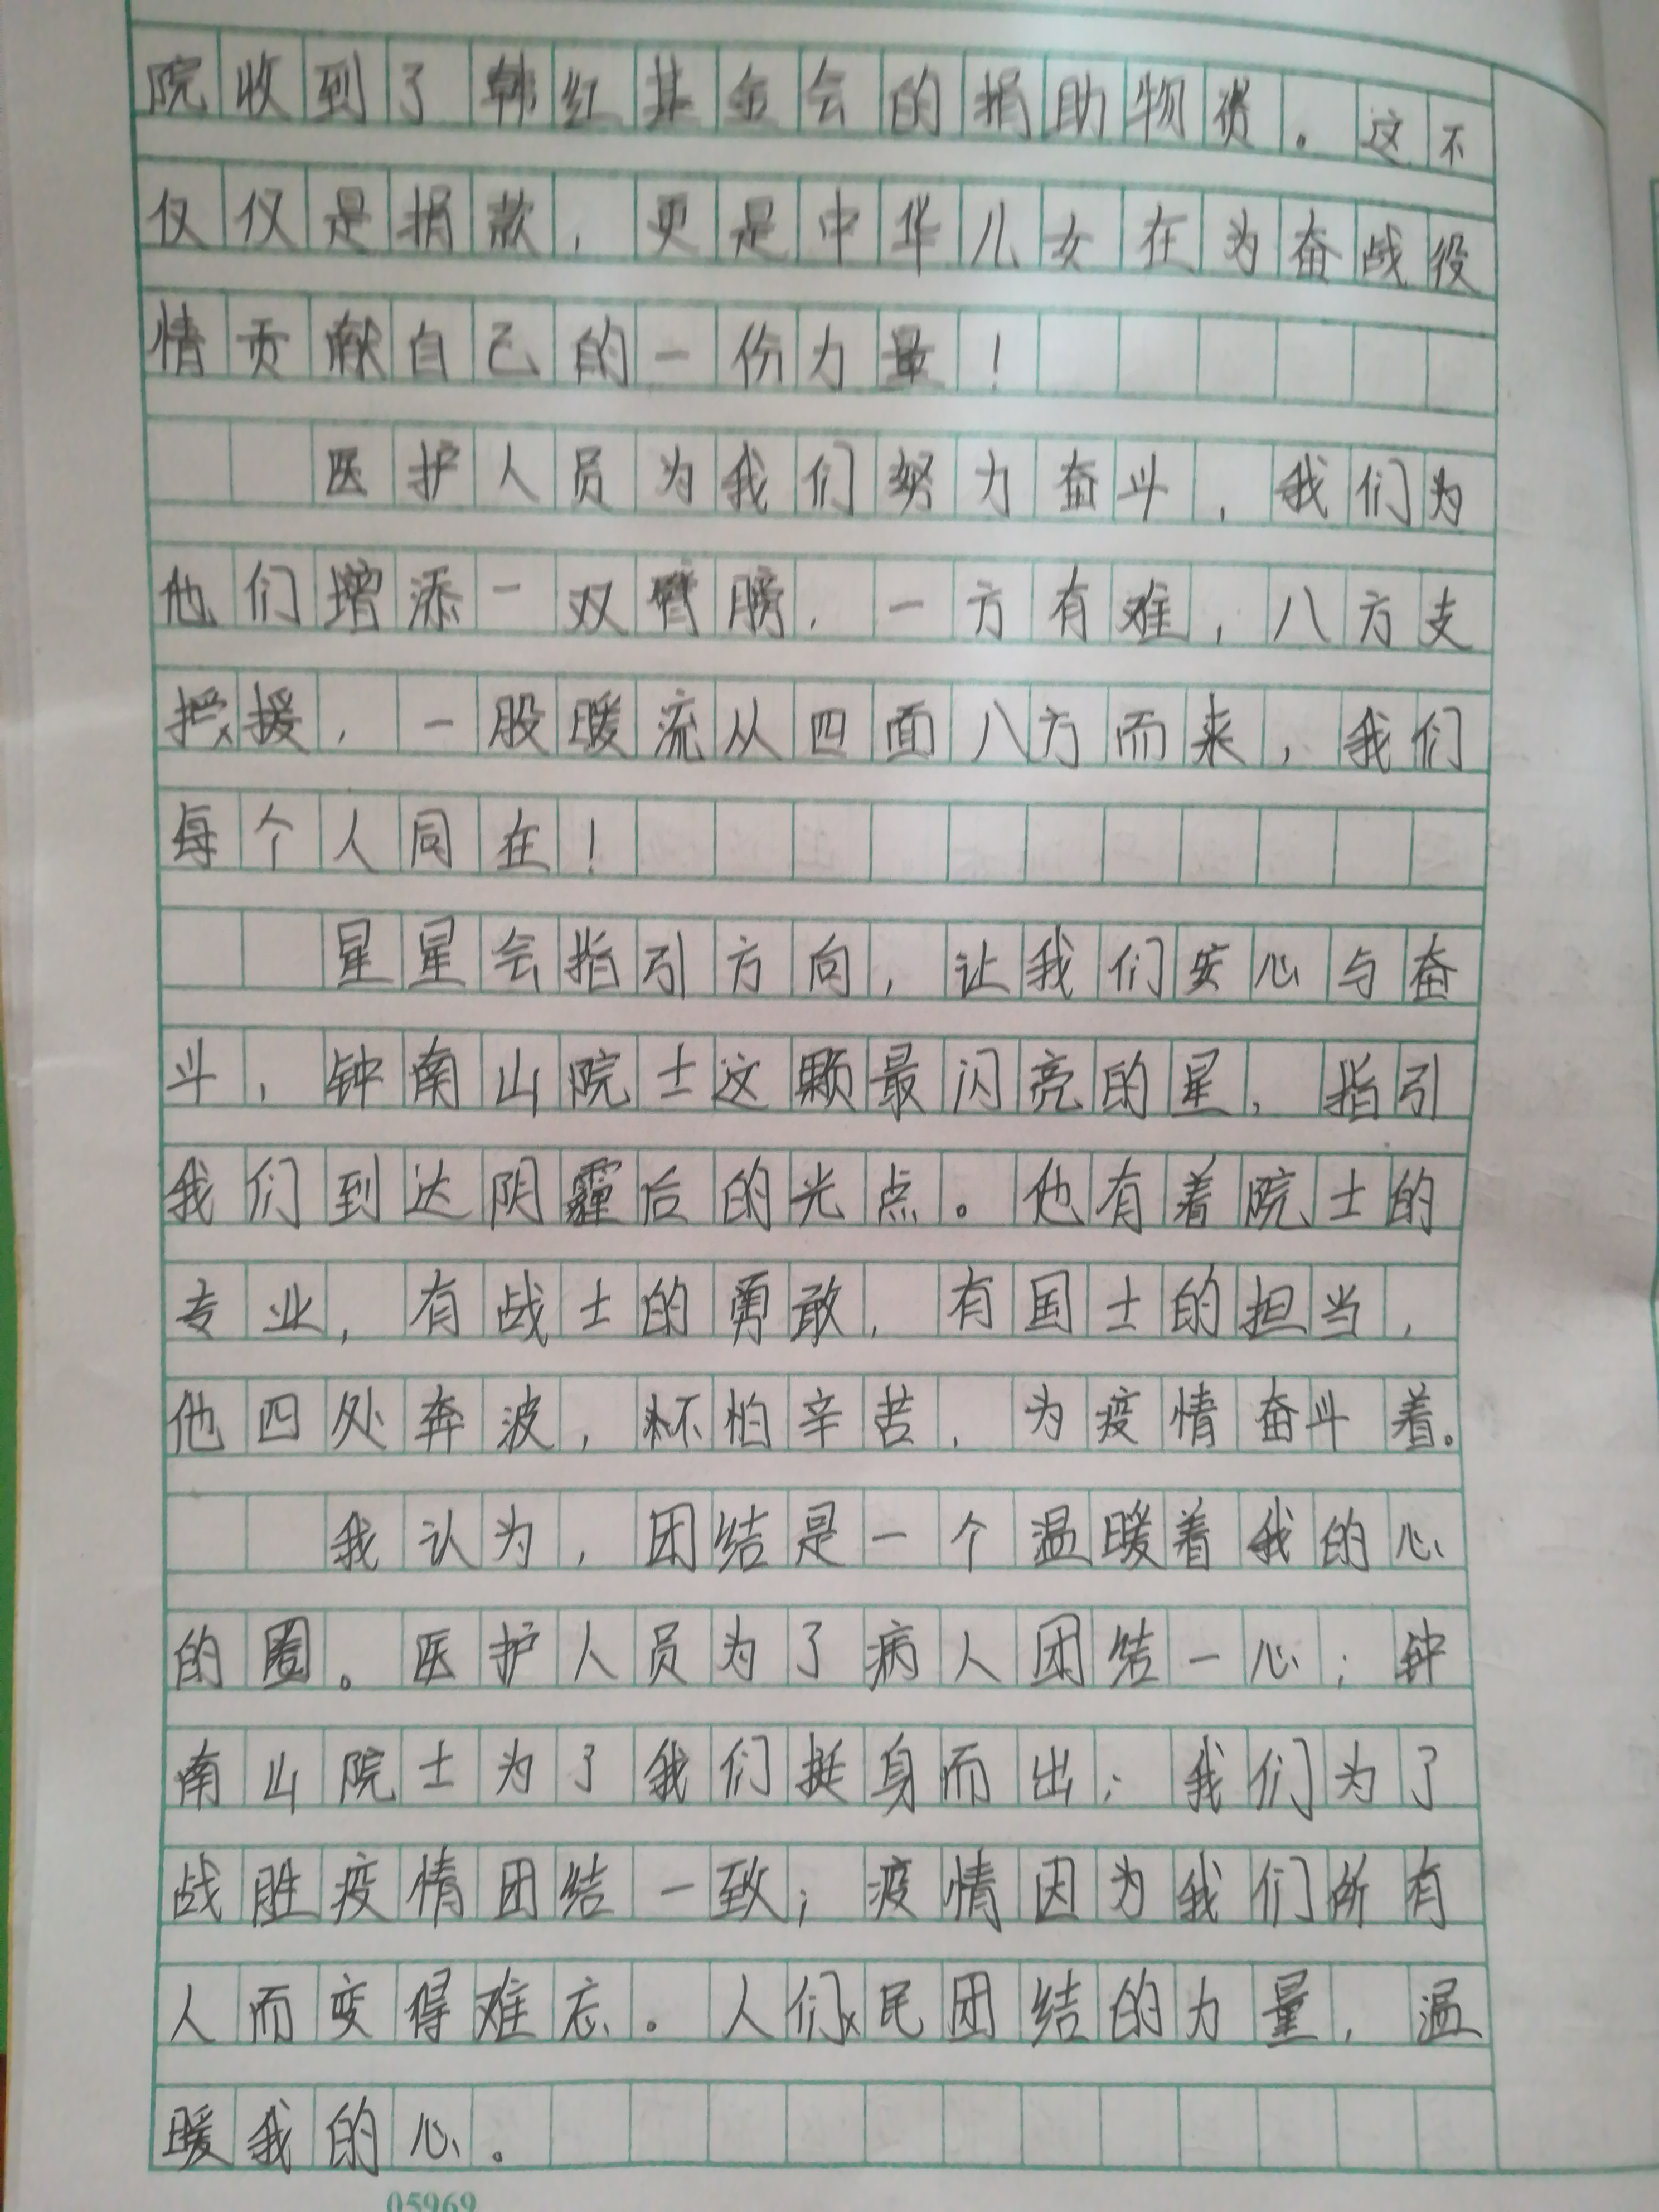 院收到了韩红基金会的捐助物资。这不
仅仅是捐款,更是中华儿女在为奋战役
情贡献自己的一份力量!
医护人员为我们努力奋斗,我们为
他们增添一双臂膀,一方有难,八方支
援,一股暖流从四面八方而来,我们
每个人同在!
星星会指引方向,让我们安心与奋
斗,钟南山院士这颗最闪亮的星,指引
我们到达阴霾后的光点。他有着院士的
专业,有战士的勇敢,有国士的担当,
他四处奔波,不怕辛苦,为疫情奋斗着。
我认为,团结是一个温暖着我的心
的圈。医护人员为了病人团结一心;钟
南山院士为了我们挺身而出;我们为了
战胜疫情团结一致;疫情因为我们所有
人而变得难忘。人们民团结的力量,温
暖我的心。
05969